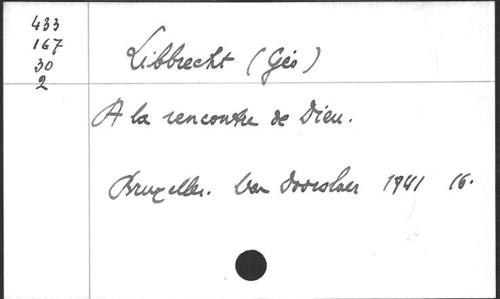 433
167
30
2
Libbrecht (Géo)
A la rencontre de Dieu.
Bruxelles. Van Doorslaer 1941 16.